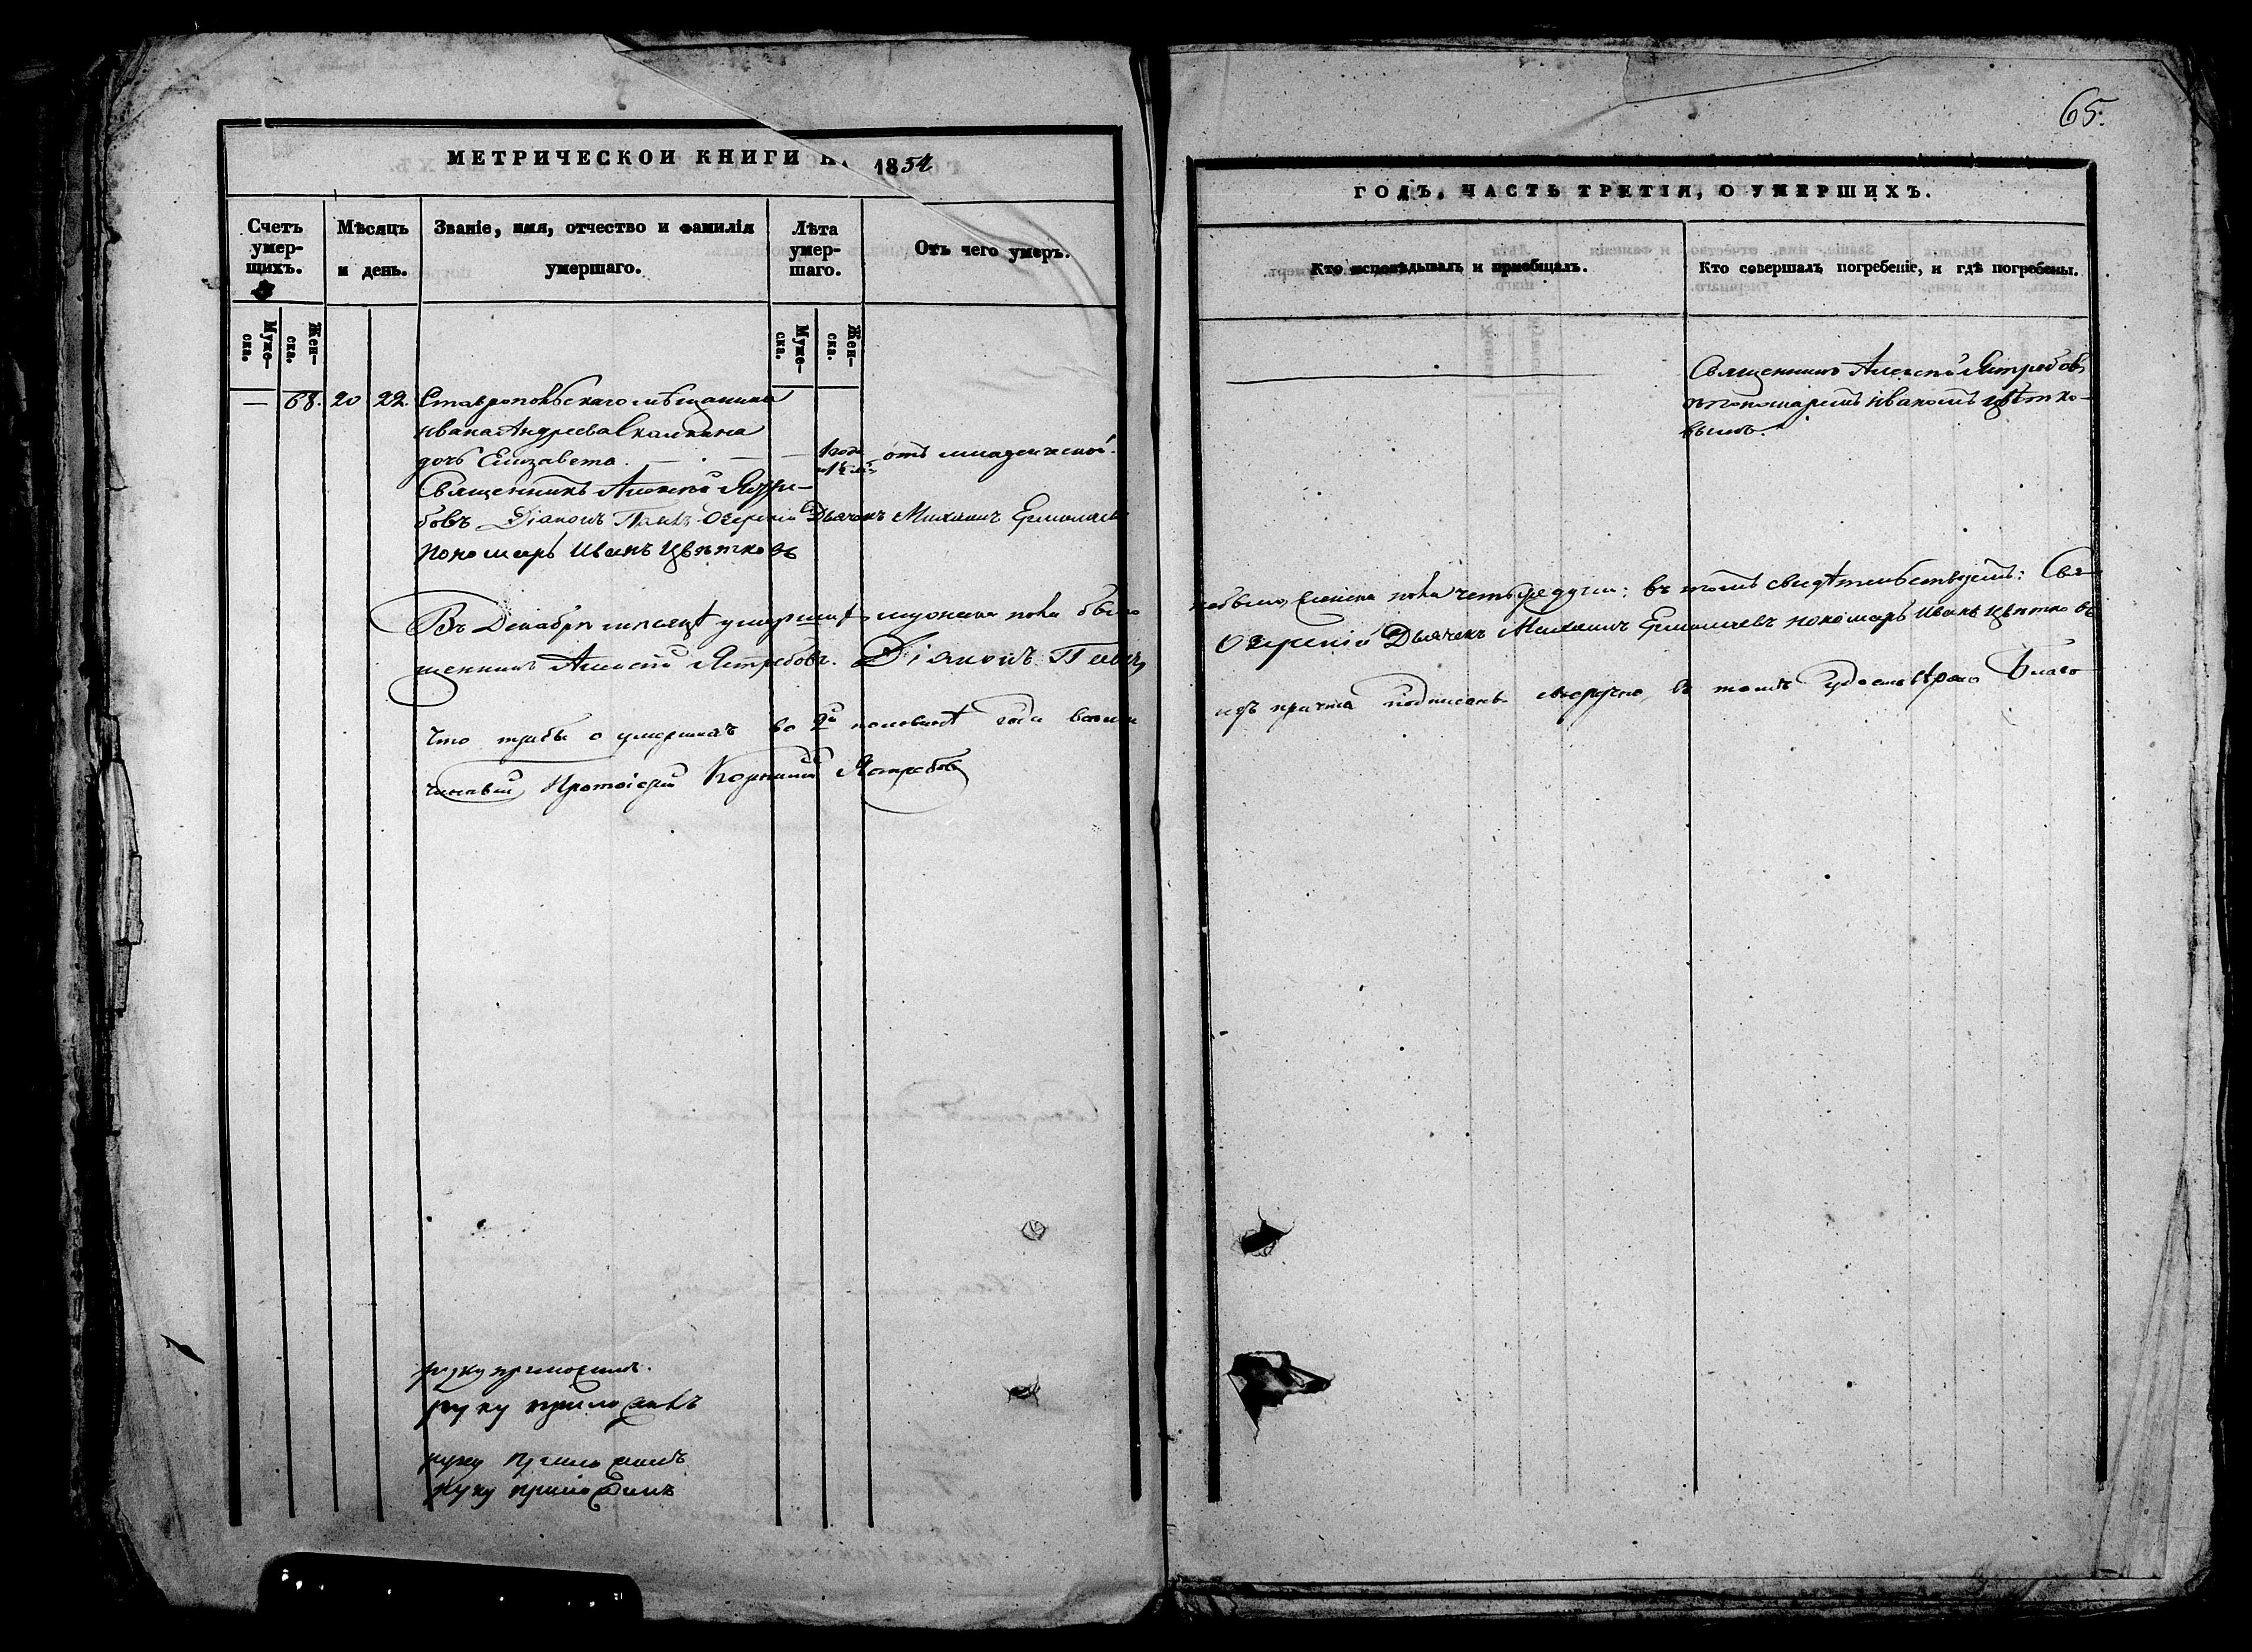 65.
МЕТРИЧЕСКОЙ КНИГИ НА 1854
ГОДЪ, ЧАСТЬ ТРЕТІЯ, О УМЕРШИХЪ.
Счетъ умер-
щихъ.
Мѣсяцъ
и день.
Званіе, имя, отчество и фамилія
умершаго.
Лѣта
умер-
шаго.
Отъ чего умеръ.
Кто исповѣдывалъ и приобщалъ.
Кто совершалъ погребеніе, и гдѣ погребены.
Муже-
ска.
Жен-
ска.
Муже-
ска.
Жен-
ска.
— 68. 20 22. Ставропольскаго мѣщанина
Ивана Андреева
дочь Елизавета. — 1 года
отъ младенческой.
Священникъ Алексѣй Ястребовъ
съ пономаремъ Иваномъ Цвѣтко-
вымъ.
Священникъ Алексѣй Ястре-
бовъ Діаконъ Озерскій Дьячекъ Михаилъ Ермолаевъ
пономарь Иванъ Цвѣтковъ
Въ Декабрѣ мѣсяцѣ умершихъ мужеска пола было
небыло, женска пола четыре души; въ томъ свидѣтельствуемъ: Свя-
щенникъ Алексѣй Ястребовъ. Діаконъ Павелъ
Озерскій Дьячекъ Михаилъ Ермолаевъ пономарь Иванъ Цвѣтковъ
Что о умершихъ во 2й половинѣ года
причта подписаны въ томъ удостовѣряю Благо-
чинный Протоіерей Ястребовъ
руку приложилъ.
руку приложилъ
руку приложилъ
руку приложилъ